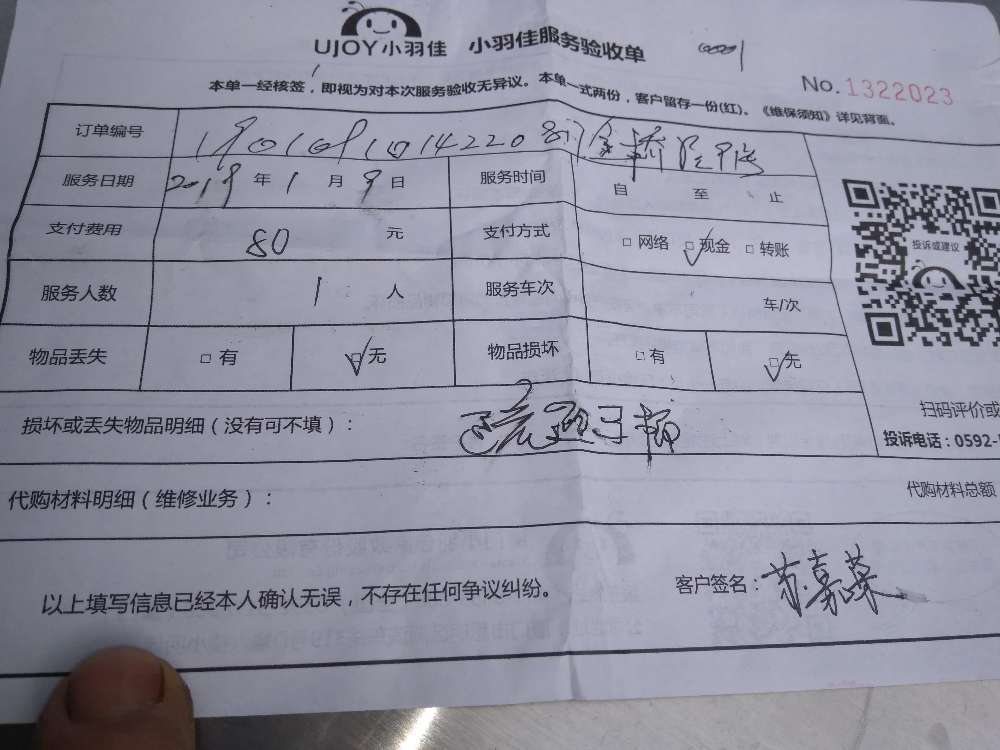 UJOY小羽佳 小羽佳服务验收单
No.1322023
本单一经核签，即视为对本次服务验收无异议。本单一式两份，客户留存一份(红)。《维保须知》详见背面。
订单编号
服务日期 2019 年 1 月 9 日 服务时间 自 至 止
支付费用 80 元 支付方式 □ 网络 □ 现金 □ 转账
投诉或建议
服务人数 1 人 服务车次 车/次
物品丢失 □ 有 □ 无 物品损坏 □ 有 □ 无
损坏或丢失物品明细（没有可不填）：
扫码评价或
投诉电话：0592-
代购材料明细（维修业务）： 代购材料总额
以上填写信息已经本人确认无误，不存在任何争议纠纷。 客户签名：